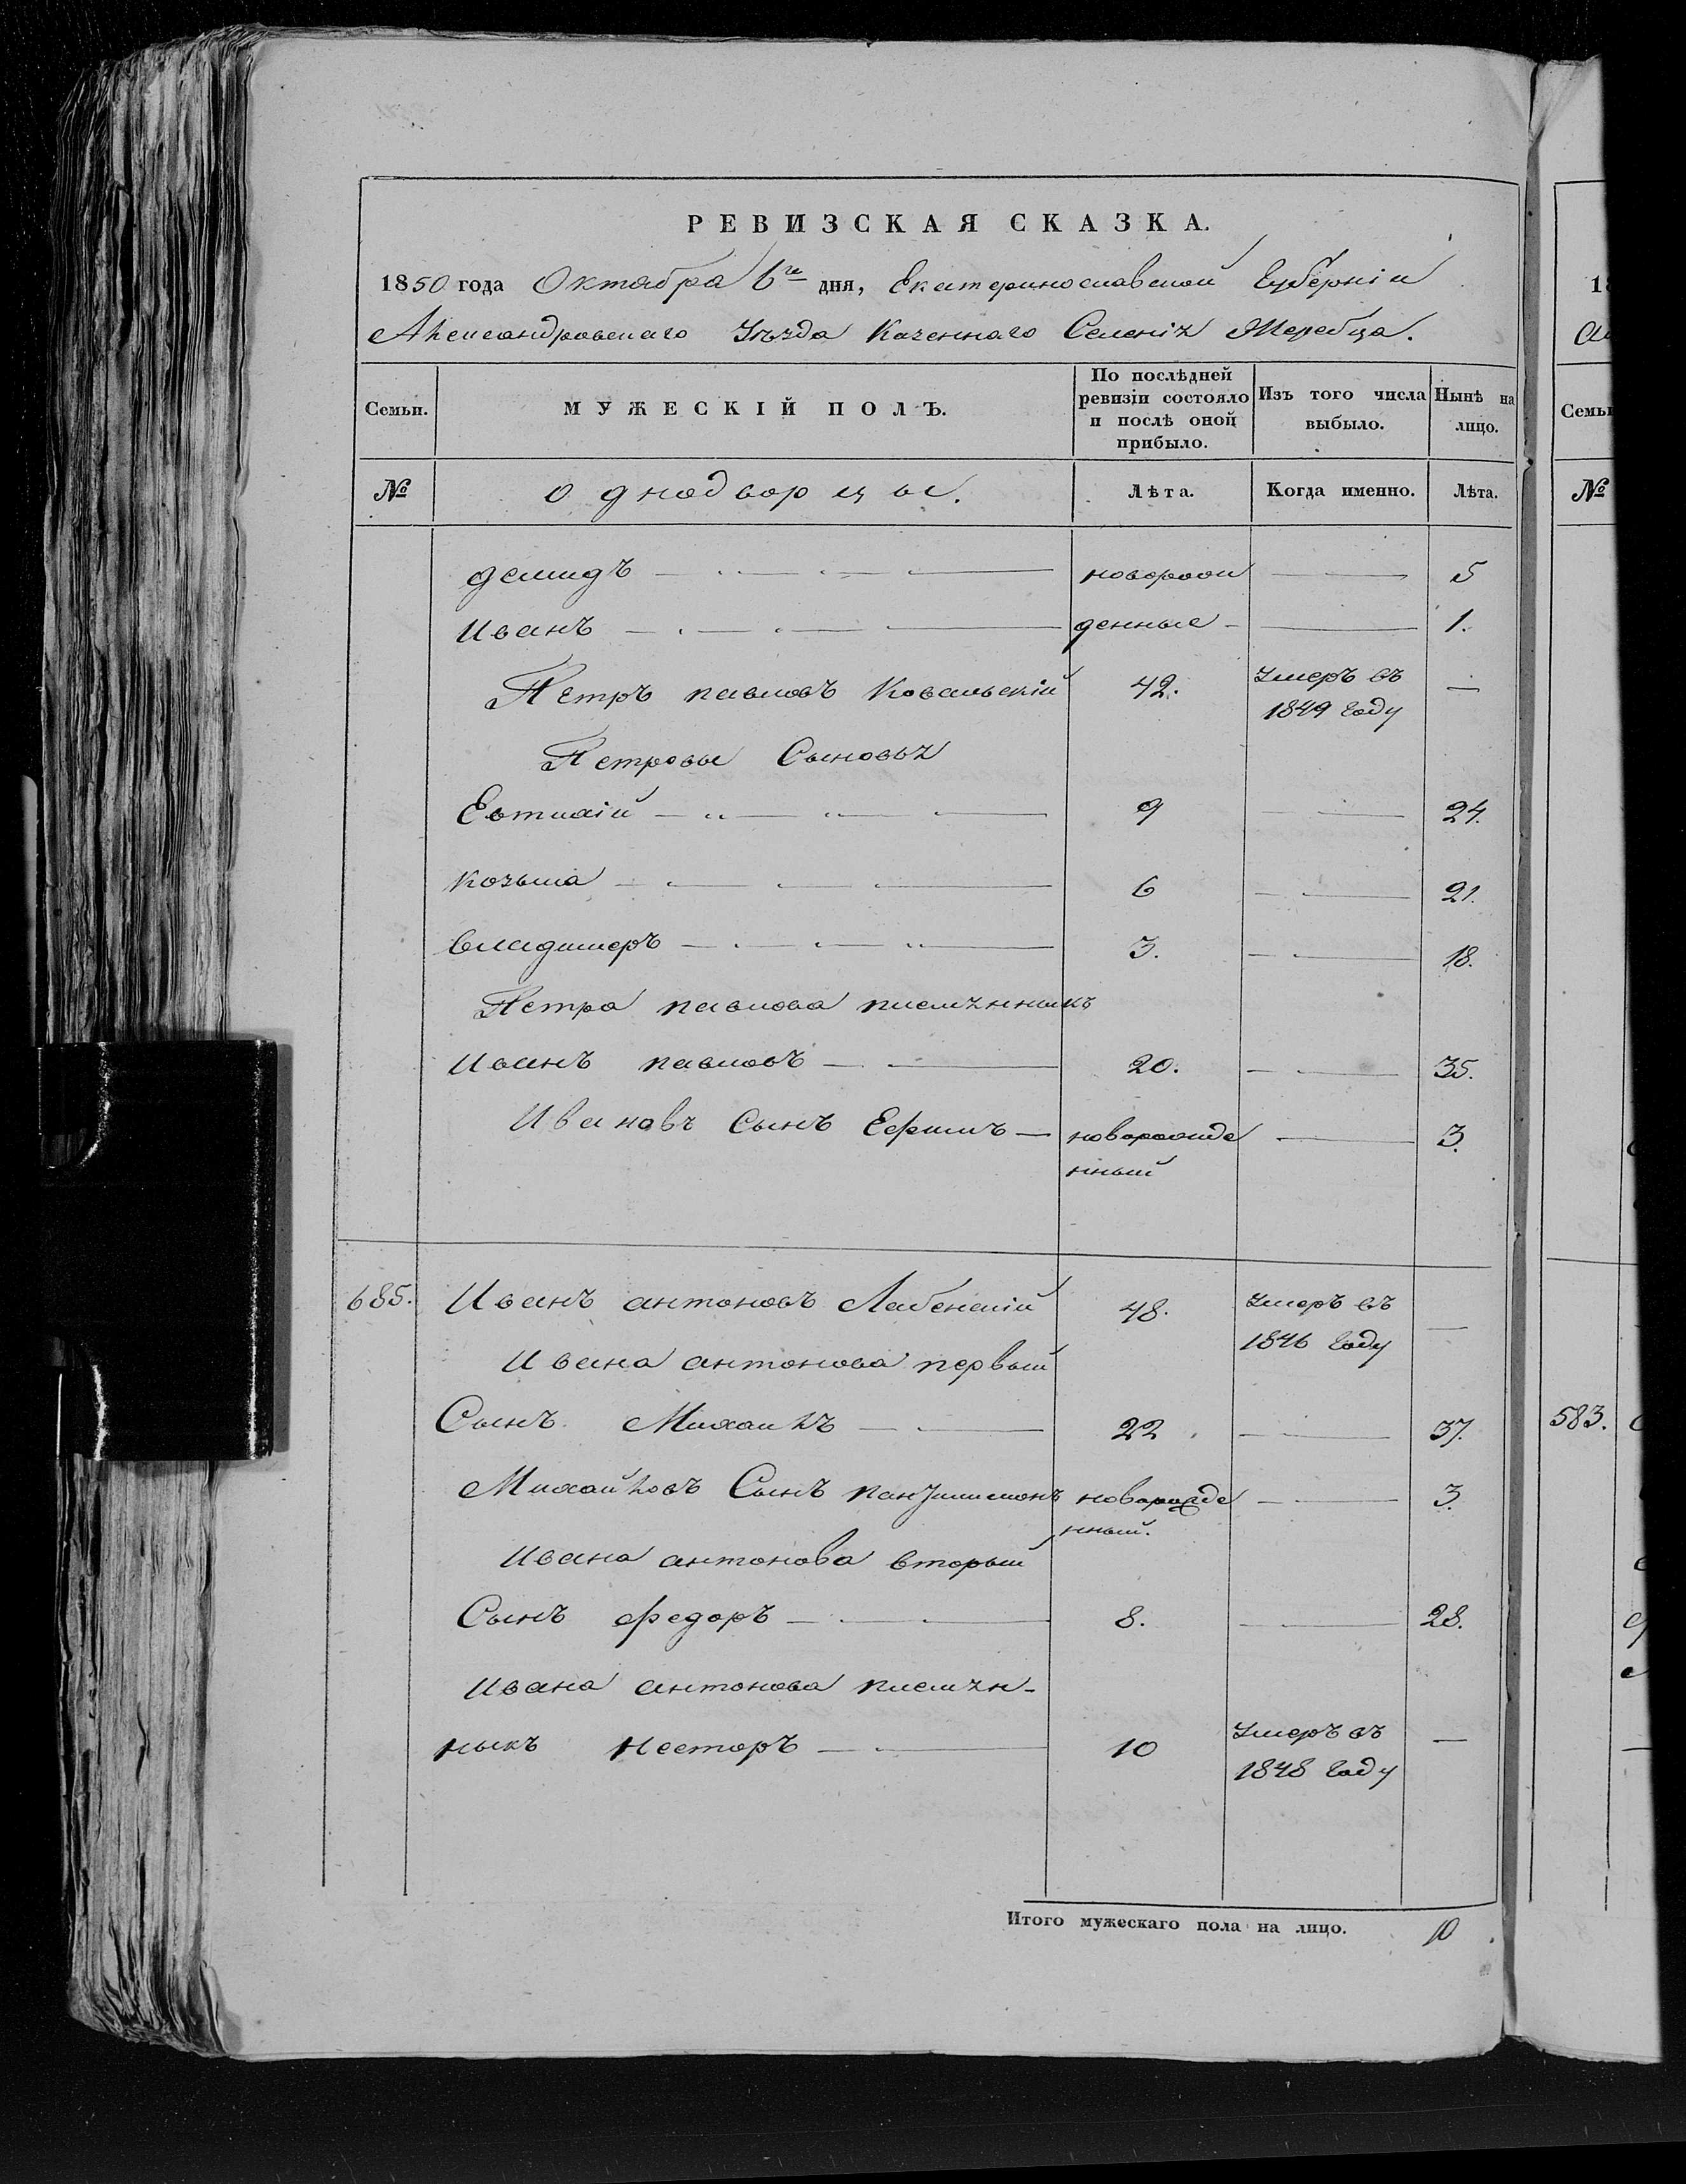 РЕВИЗСКАЯ СКАЗКА.
1850 года Октября 6го дня, Екатеринославской Губерніи
Александровскаго Уѣзда Казеннаго Селенія Жеребца.
Семьи. МУЖЕСКІЙ ПОЛЪ. По послѣдней ревизіи состояло и послѣ оной прибыло. Изъ того числа выбыло. Нынѣ на лицо.
№ однодворцы. Лѣта. Когда именно. Лѣта.
демидъ новорож 5
Иванъ денные 1.
Петръ павловъ Ковальскій 42. Умеръ въ —
1849 году
Петровы Сыновья
Евтихій 9 24.
козьма 6 21.
владимеръ 3. 18.
Петра павлова племянникъ
Иванъ павловъ 20. 35.
Ивановъ Сынъ Ефимъ новорожде 3.
нный
685. Иванъ антоновъ Лабенскій 48. Умеръ въ —
1846 году
Ивана антонова первый
Сынъ Михаилъ 22. 37.
Михайловъ Сынъ новорожде 3.
нный.
Ивана антонова вторый
Сынъ федоръ 8. 28.
Ивана антонова племян-
ныкъ Несторъ 10 Умеръ въ —
1848 году
Итого мужескаго пола на лицо. 10
18
Семьи
№
583.